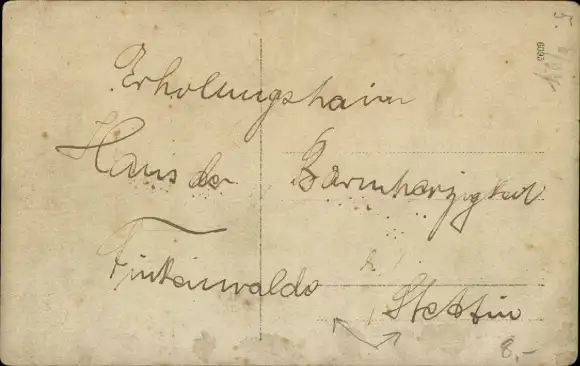 Erholungshaim
Haus der Barmherzigkeit
Finkenwalde
Stettin
6095
8.-